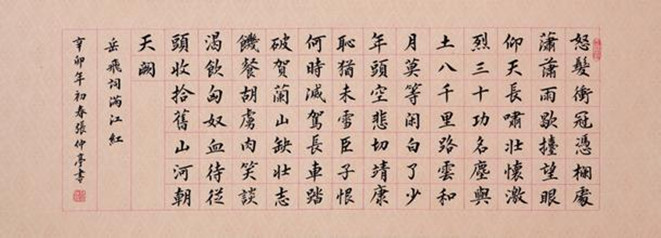 怒髮衝冠憑欄處
瀟瀟雨歇擡望眼
仰天長嘯壯懷激
烈三十功名塵與
土八千里路雲和
月莫等閑白了少
年頭空悲切靖康
恥猶未雪臣子恨
何時滅駕長車踏
破賀蘭山缺壯志
饑餐胡虜肉笑談
渴飲匈奴血待從
頭收拾舊山河朝
天闕
岳飛詞滿江紅
辛卯年初春張仲亭書